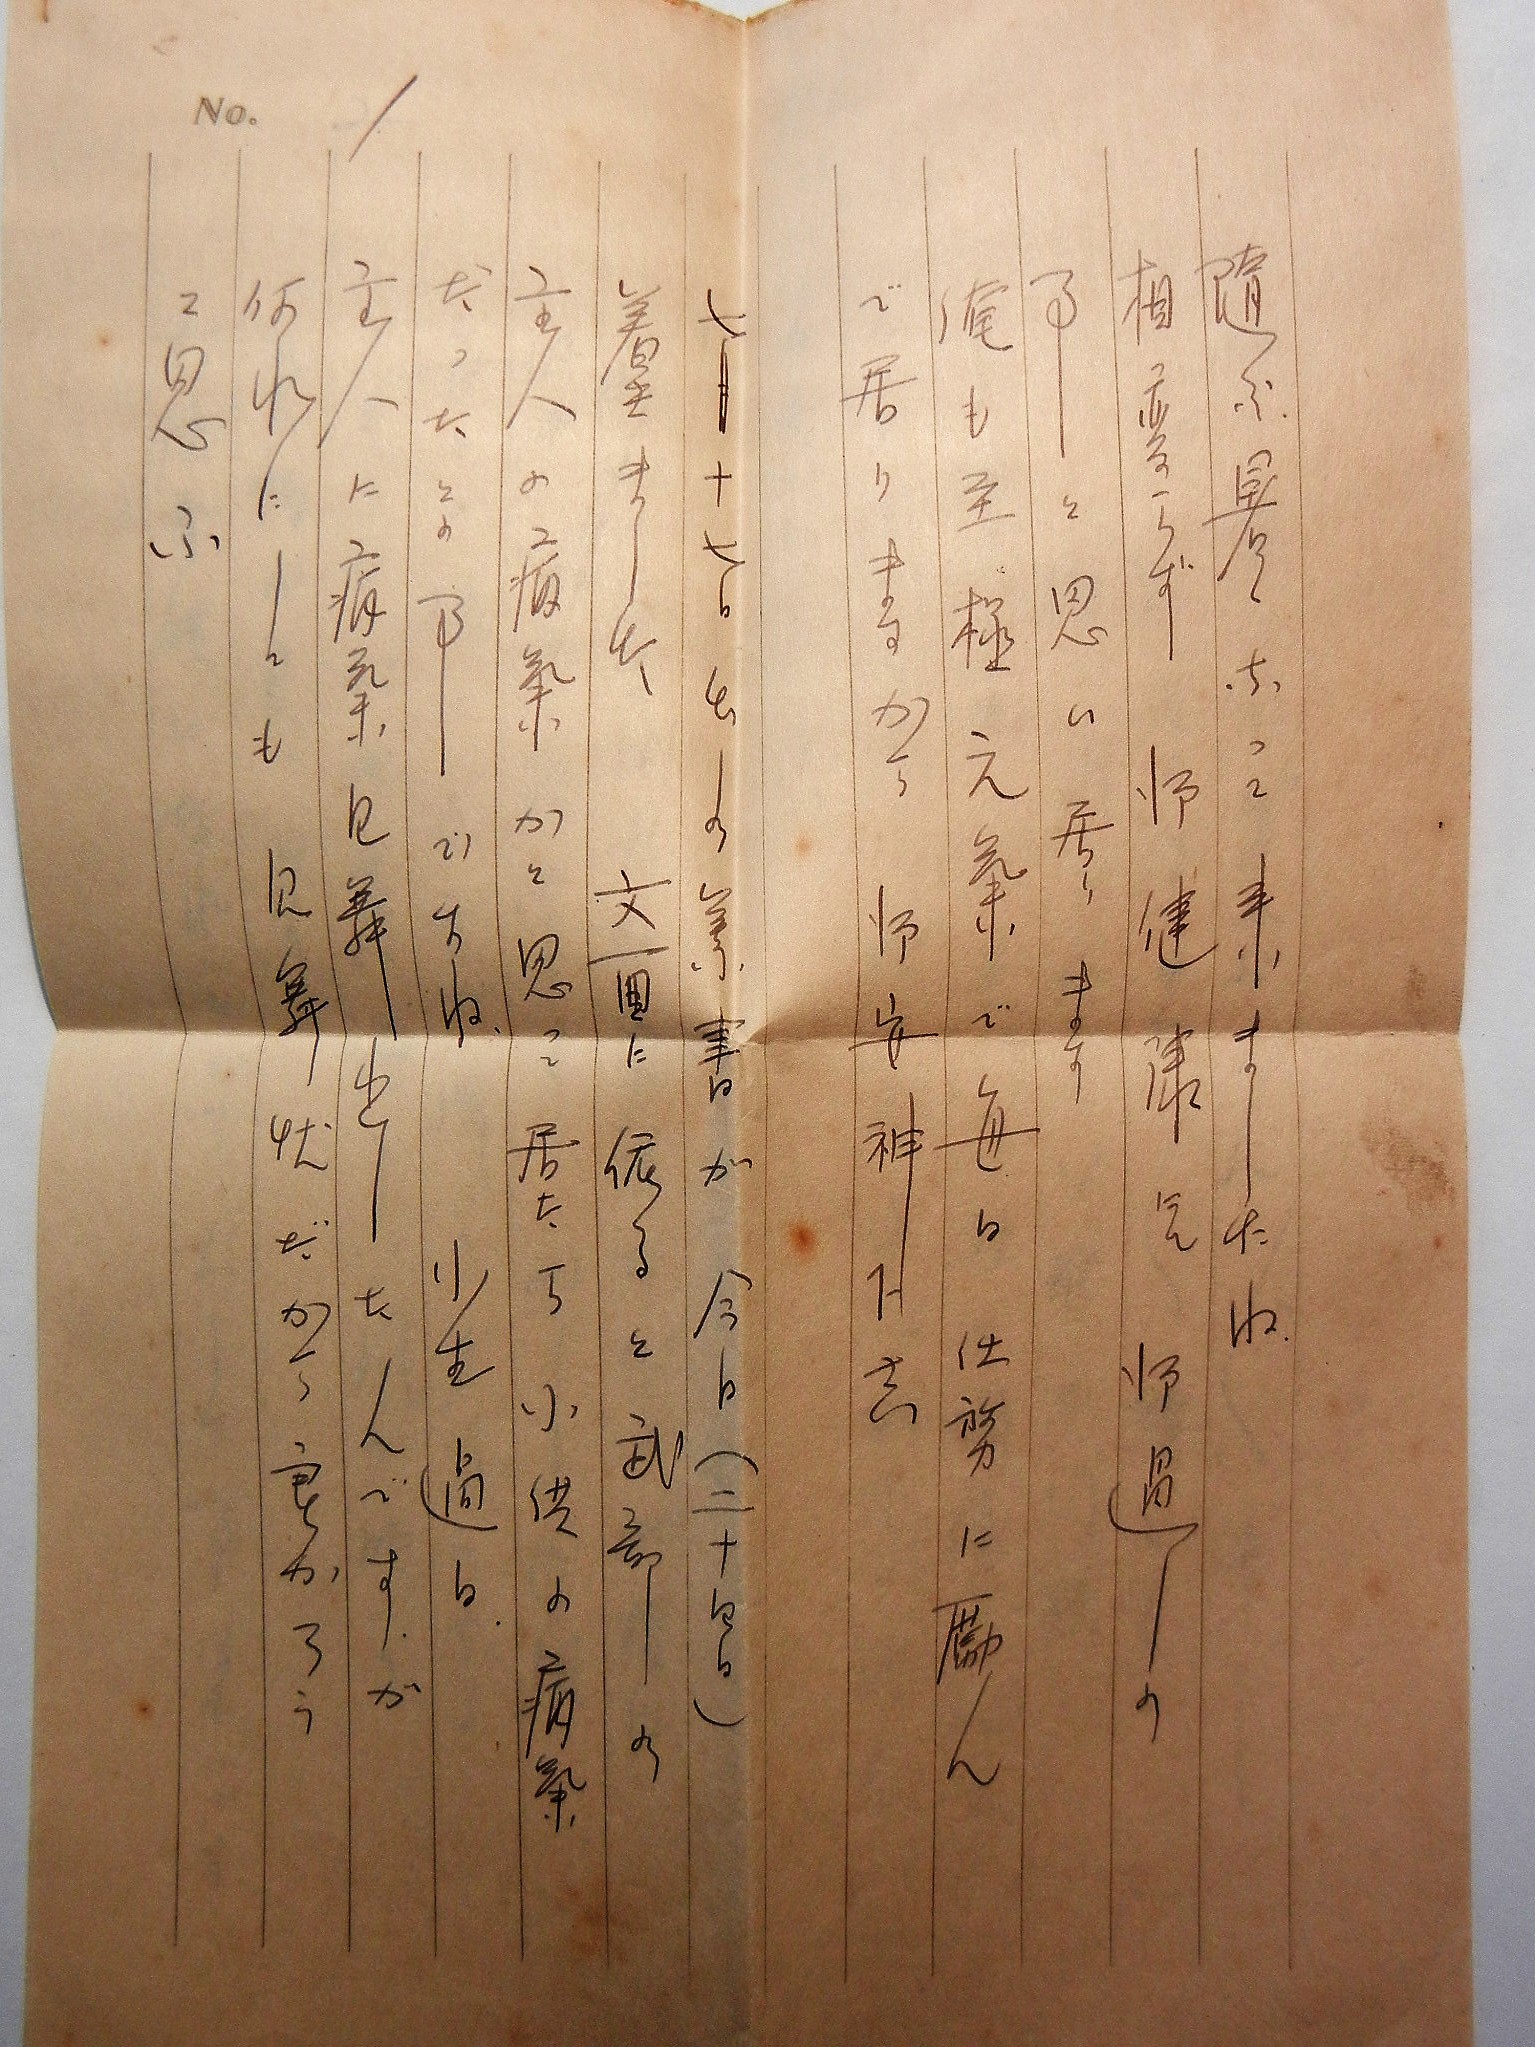 No. 1
隨分暑くなって来ましたね
相変らず 御健康にて 御過しの
事と思い居ります
俺も至極元氣で毎日仕務に励ん
で居りますから 御安神下さい
七月十七日出しの葉書が今日(二十四日)
着きました 文面に依ると武部しの
主人の病氣かと思って居たら小供の病氣
だったとの事ですね 小生過日
主人に病氣見舞出したんですが
何れにしても見舞状だから宜かろう
と思ふ